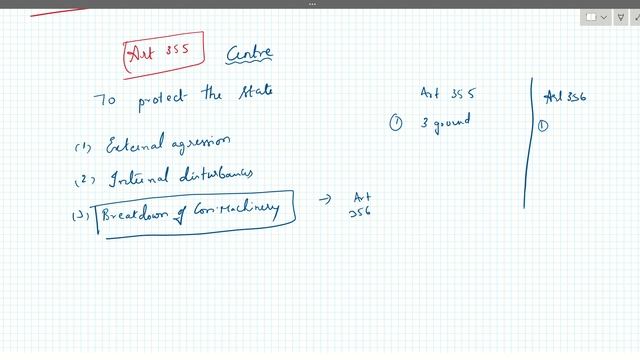 Art 355 Centre
To protect the state
(1) External agression
(2) Internal disturbances
(3) Breakdown of Con. Machinery → Art 356
Art 355
① 3 ground
Art 356
①